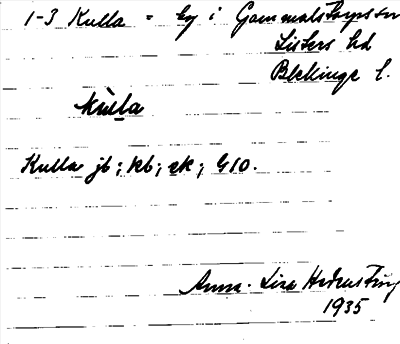 1-3 Kulla = by i Gammalstorps sn
Listers hd
Blekinge l.
kùlla
Kulla jb; kb; ek; G10.
Anna-Lisa
1935